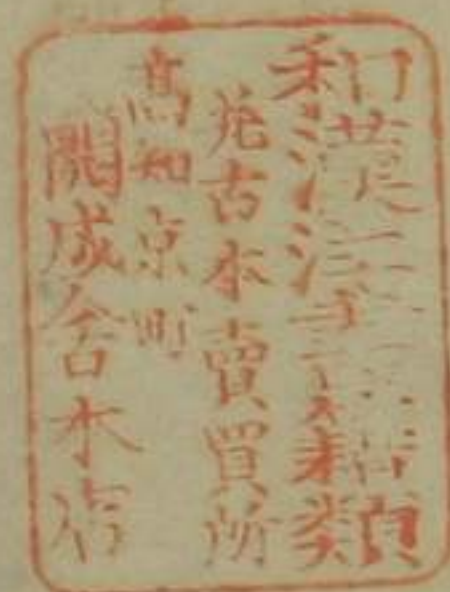 和漢洋書籍類
並古本賣買所
高知京町
開成舎本店